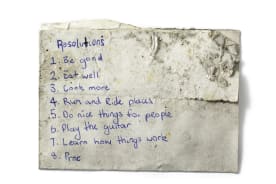 Resolutions
1. Be good
2. Eat well
3. Cook more
4. Run and Ride places
5. Do nice things for people
6. Play the guitar
7. Learn how things work
8.